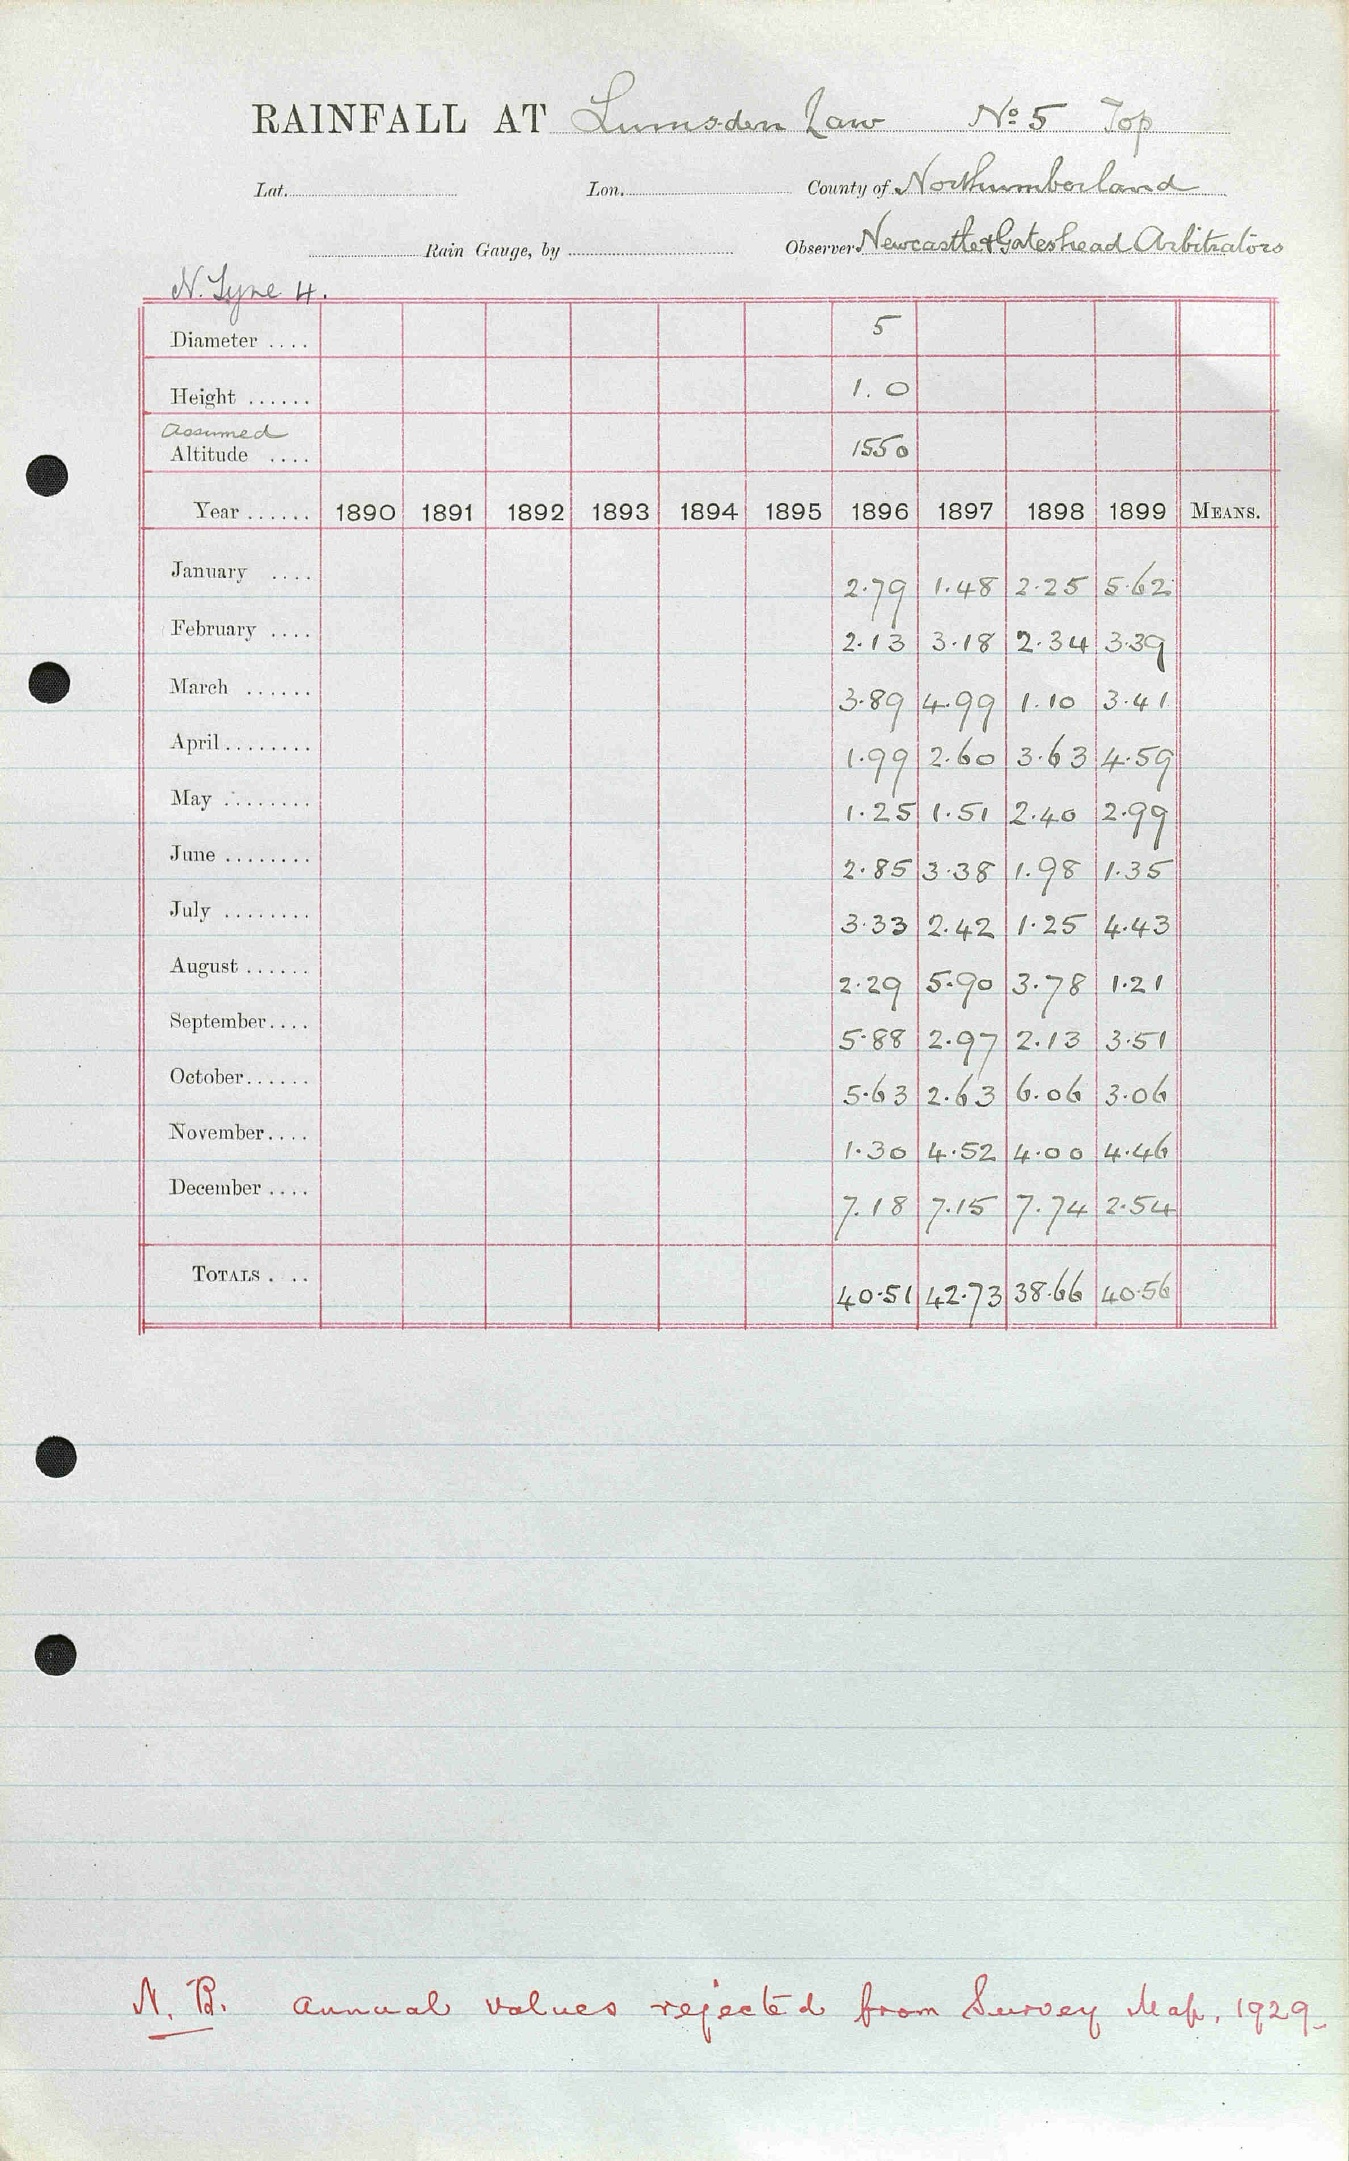 RAINFALL AT Lumsden Law No 5 Top
Lat. Lon. County of Northumberland
Rain Gauge, by Observer Newcastle & Gateshead Arbitrators
N. Tyne 4.
Diameter .... 5
Height ...... 1.0
Assumed
Altitude .... 1550
Year ...... 1890 1891 1892 1893 1894 1895 1896 1897 1898 1899 MEANS.
January .... 2.79 1.48 2.25 5.62
February .... 2.13 3.18 2.34 3.39
March ...... 3.89 4.99 1.10 3.41
April ........ 1.99 2.60 3.63 4.59
May ........ 1.25 1.51 2.40 2.99
June ........ 2.85 3.38 1.98 1.35
July ........ 3.33 2.42 1.25 4.43
August ...... 2.29 5.90 3.78 1.21
September.... 5.88 2.97 2.13 3.51
October...... 5.63 2.63 6.06 3.06
November.... 1.30 4.52 4.00 4.46
December .... 7.18 7.15 7.74 2.54
TOTALS . .. 40.51 42.73 38.66 40.56
N.B. Annual values rejected from Survey Map, 1929